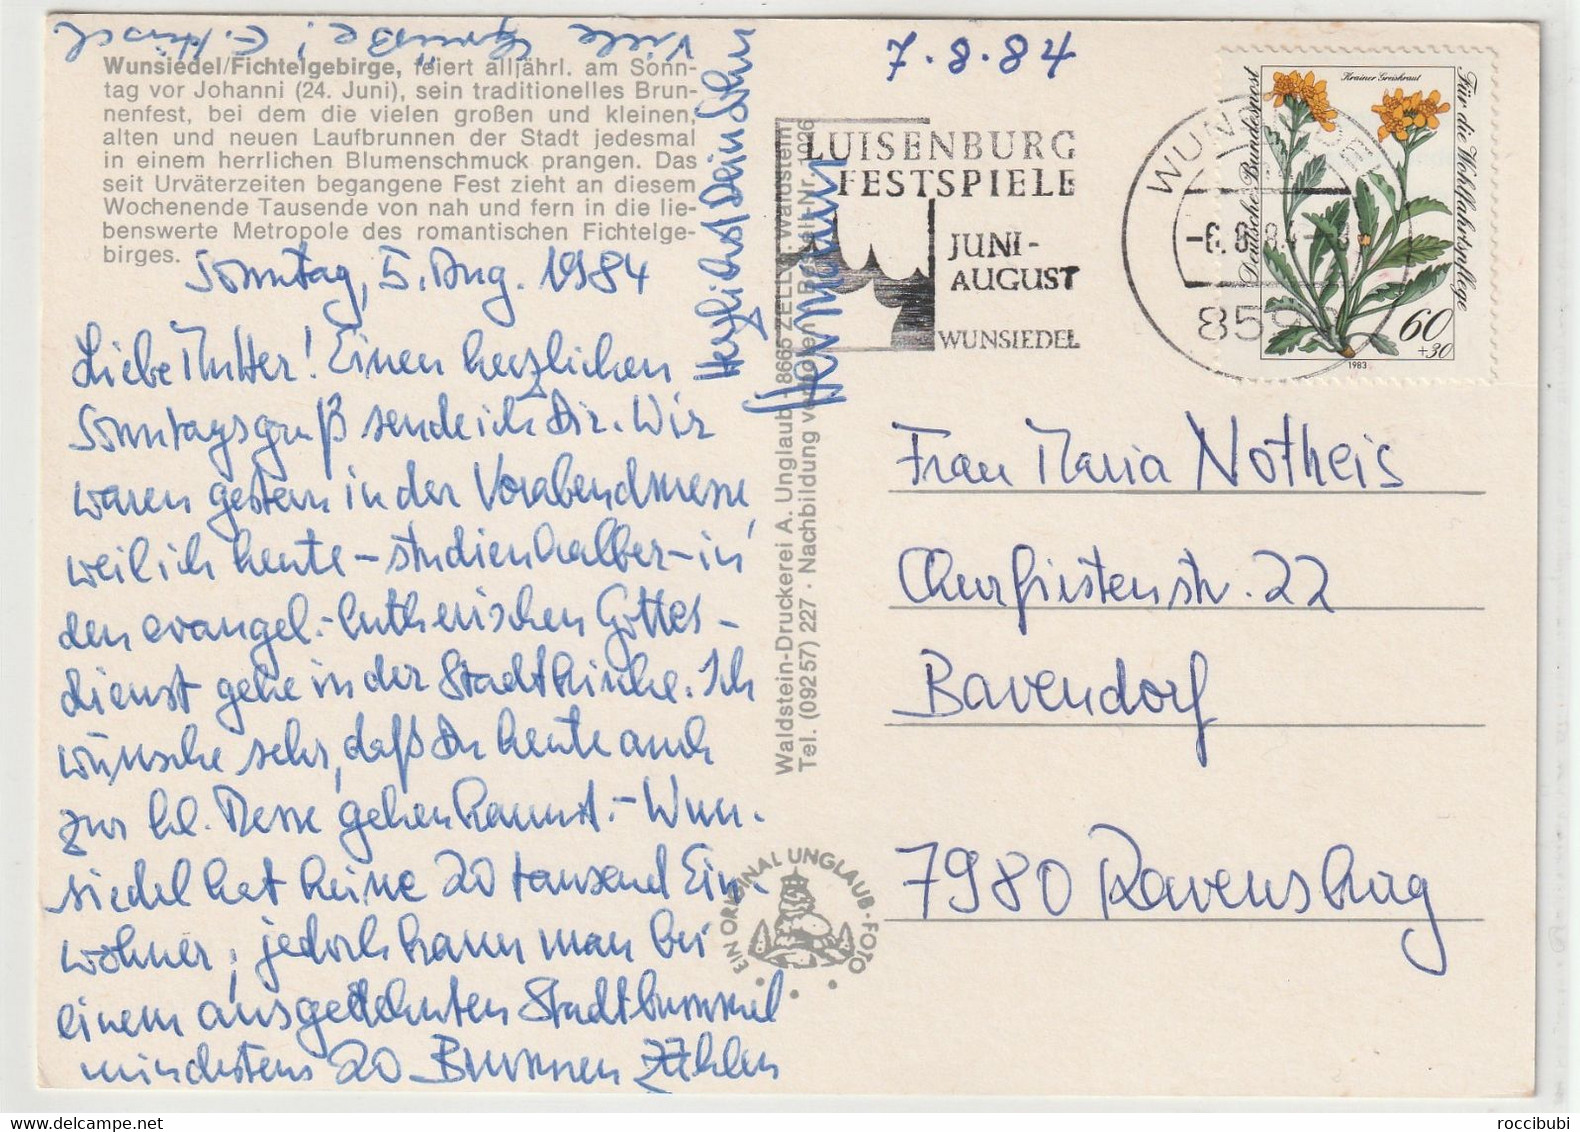 Viele Grüße! E. Hirsch
Wunsiedel/Fichtelgebirge, feiert alljährl. am Sonn-
tag vor Johanni (24. Juni), sein traditionelles Brun-
nenfest, bei dem die vielen großen und kleinen,
alten und neuen Laufbrunnen der Stadt jedesmal
in einem herrlichen Blumenschmuck prangen. Das
seit Urväterzeiten begangene Fest zieht an diesem
Wochenende Tausende von nah und fern in die lie-
benswerte Metropole des romantischen Fichtelge-
birges.
Sonntag, 5. Aug. 1984
Liebe Mutter! Einen herzlichen
Sonntagsgruß sende ich Dir. Wir
waren gestern in der Vorabendmesse,
weil ich heute – studienhalber – in
den evangel.-lutherischen Gottes-
dienst gehe in der Stadtkirche. Ich
wünsche sehr, daß Du heute auch
zur hl. Messe gehen kannst. – Wun-
siedel hat keine 20 tausend Ein-
wohner; jedoch kann man bei
einem ausgedehnten Stadtbummel
mindestens 20 Brunnen zählen
Herzlichst Dein Sohn
Hermann
Waldstein-Druckerei A. Unglaub · 8665 ZELL · Waldstein
Tel. (09257) 227 · Nachbildung verboten · Bestell-Nr.
EIN ORIGINAL UNGLAUB-FOTO
7.8.84
LUISENBURG
FESTSPIELE
JUNI-
AUGUST
WUNSIEDEL
Krainer Greiskraut
Deutsche Bundespost
Für die Wohlfahrtspflege
60
+30
1983
Frau Maria Notheis
Churfirstenstr. 22
Bavendorf
7980 Ravensburg
roccibubi